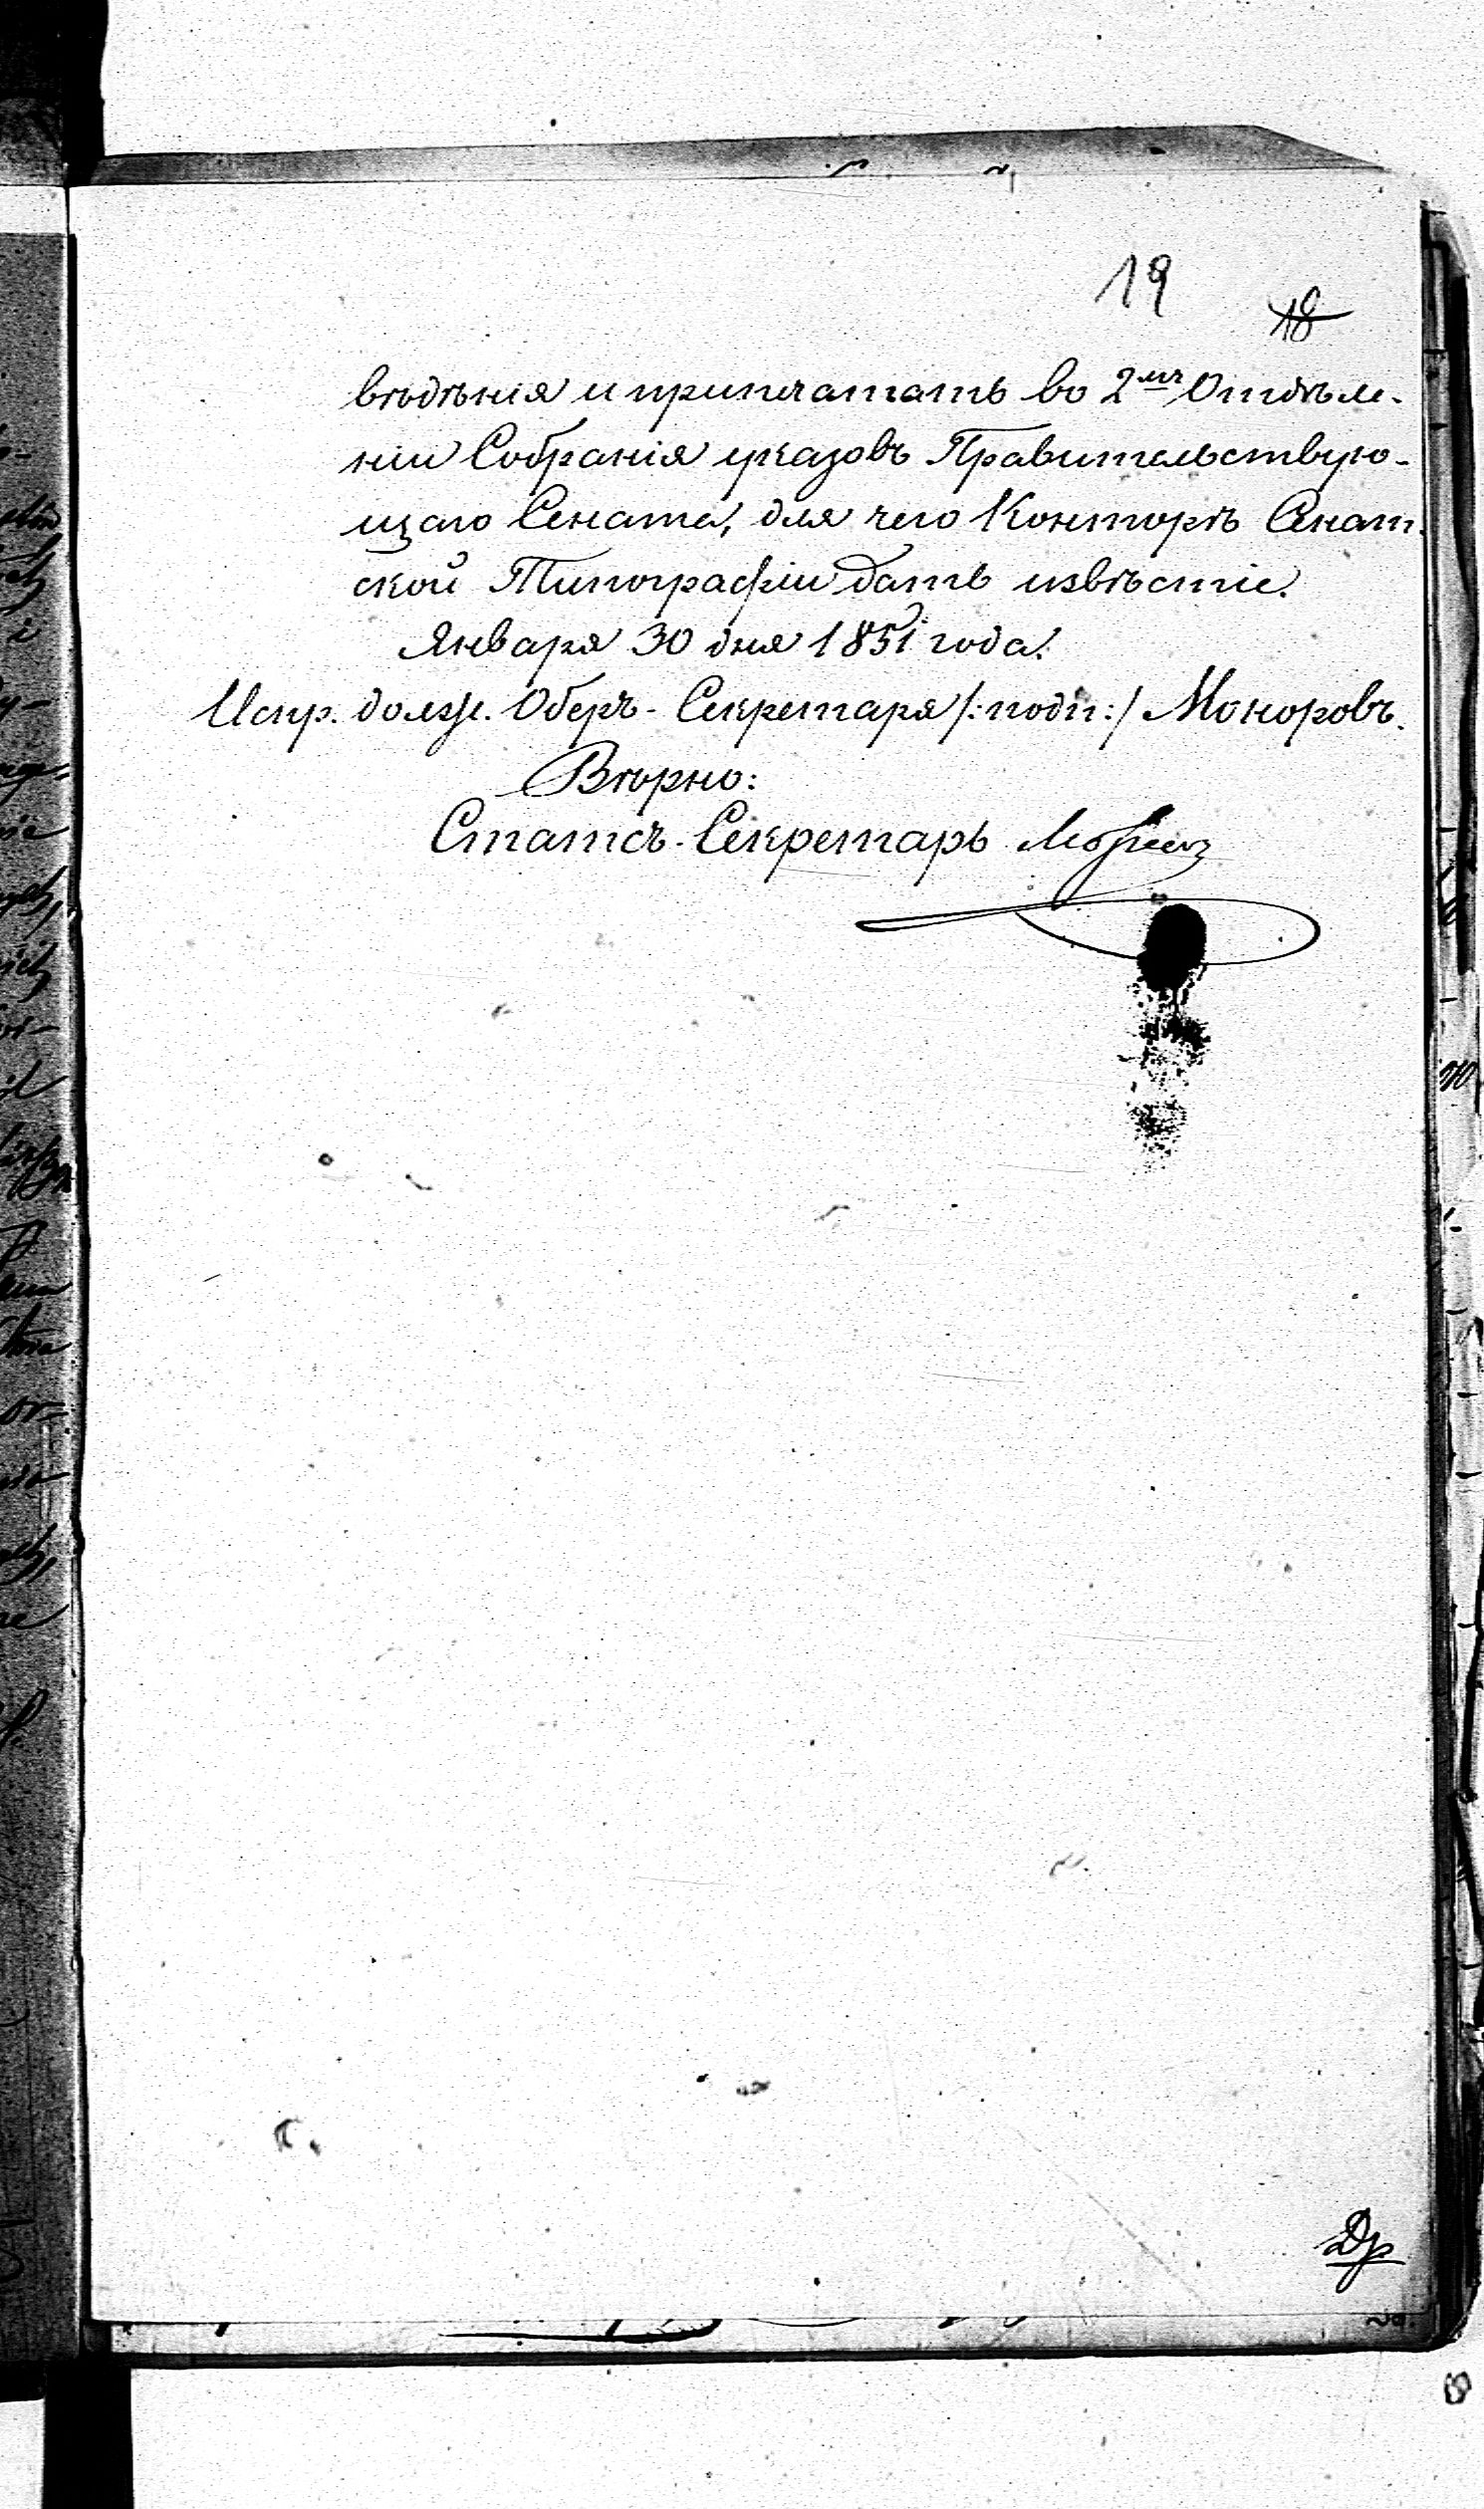 19
18
вѣдѣнія и припечатать во 2мъ Отдѣле-
ніи Собранія указовъ Правительствую-
щаго Сената, для чего Конторѣ Сенат-
ской Типографіи дать извѣстіе.
Января 30 дня 1851 года.
Испр. долж. Оберъ-Секретаря /:подп:/ Моноровъ.
Вѣрно:
Статсъ-Секретарь